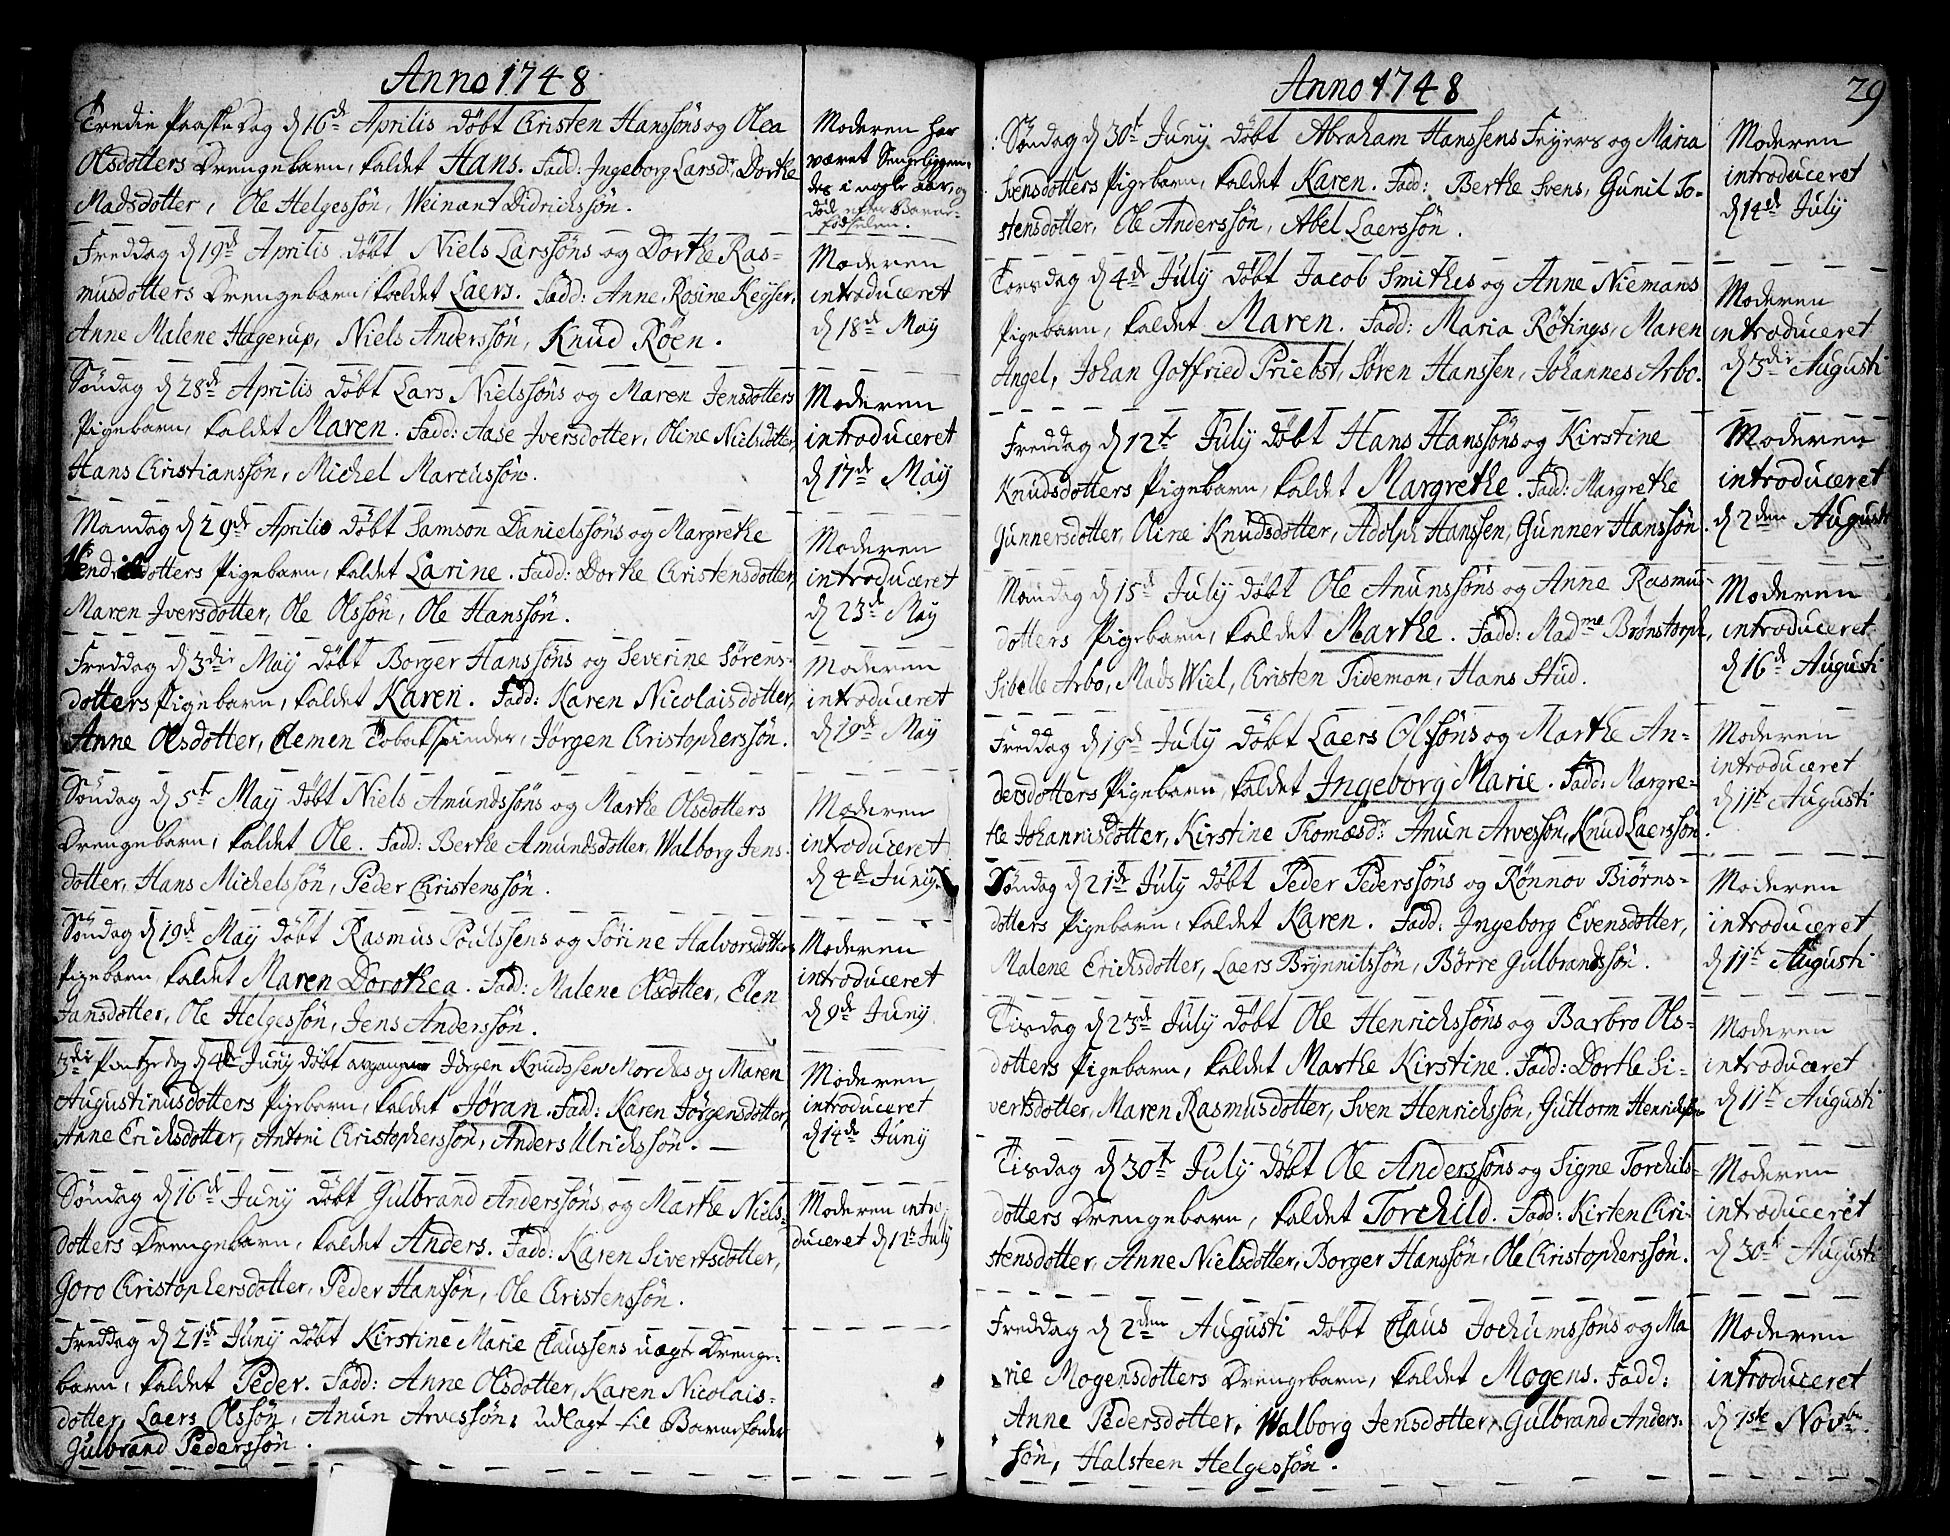 Anno 1748
Tredie Paaske Dag d 16de Aprilis døbt Christen Hanssøns og Olea
Olsdotters Drengebarn, kaldet Hans. Fadd: Ingeborg Larsdr, Dorthe
Madsdotter, Ole Helgessøn, Weinant Didrichssøn.
Moderen har
været Sengeliggen-
des i nogle Aar, og
død efter Barne-
fødselen.
Freddag d 19de Aprilis døbt Niels Larssøns og Dorthe Ras-
musdotters Drengebarn kaldet Laers. Fadd: Anne Rosine Keyser,
Anne Malene Hagerup, Niels Anderssøn, Knud Røen.
Moderen
introduceret
d 18de Maÿ
Søndag d 28de Aprilis døbt Lars Nielssøns og Maren Jensdotters
Pigebarn, kaldet Maren. Fadd: Aase Iversdotter, Oline Nielsdotter,
Hans Christianssøn, Michel Marcussøn.
Moderen
introduceret
d 17de Maÿ
Mandag d 29de Aprilis døbt Samson Danielssøns og Margrethe
Hendrichsdotters Pigebarn, kaldet Larine. Fadd: Dorthe Christensdotter,
Maren Iversdotter, Ole Olssøn, Ole Hanssøn.
Moderen
introduceret
d 23de Maÿ
Freddag d 3die Maÿ døbt Borger Hanssøns og Severine Sørens-
dotters Pigebarn, kaldet Karen. Fadd: Karen Nicolaisdotter,
Anne Olsdotter, Clemen Tobakspinder, Jørgen Christopherssøn.
Moderen
introduceret
d 19de Maÿ
Søndag d 5te Maÿ døbt Niels Amundssøns og Marthe Olsdotters
Drengebarn, kaldet Ole. Fadd: Berthe Amundsdotter, Walborg Jens-
dotter, Hans Michelssøn, Peder Christenssøn.
Moderen
introduceret
d 4de Junÿ
Søndag d 19de Maÿ døbt Rasmus Poulssens og Sørine Halvorsdotters
Pigebarn, kaldet Maren Dorothea. Fad: Malene Olsdotter, Elen
Hansdotter, Ole Helgessøn, Jens Anderssøn.
Moderen
introduceret
d 9de Junÿ
3die d 4de Junÿ døbt Jörgen Knudssens og Maren
Augustinusdotters Pigebarn, kaldet Jøran. Fadd: Karen Jörgensdotter,
Anne Ericksdotter, Antoni Christopherssøn, Anders Ulrichssøn.
Moderen
introduceret
d 14de Junÿ
Søndag d 16de Juny døbt Gulbrand Anderssøns og Marthe Niels-
dotters Drengebarn, kaldet Anders. Fadd: Karen Sivertsdotter,
Goro Christophersdotter, Peder Hanssøn, Ole Christenssøn.
Moderen intro-
duceret d 11te July
Freddag d 21de Juny døbt Kirstine Marie Claussens uægte Drenge-
barn, kaldet Peder. Fadd: Anne Olsdotter, Karen Nicolais-
dotter, Laers Olssøn, Anun Arvessøn, udlagt til Barnefader
Gulbrand Pederssøn.
Anno 1748
29
Søndag d 30te Juny døbt Abraham Hanssens Feyers og Maria
Svensdotters Pigebarn, kaldet Karen. Fadd: Berthe Svens, Gunil To-
stensdotter, Ole Anderssøn, Abel Laerssøn.
Moderen
introduceret
d 14de July
Torsdag d 4de July døbt Jacob Smithes og Anne Niemans
Pigebarn, kaldet Maren. Fadd: Maria Røtings, Maren
Angel, Johan Gotfried Priebst, Søren Hanssen, Johannes Arbo.
Moderen
introduceret
d 3die Augusti
Freddag d 12te July døbt Hans Hanssøns og Kirstine
Knudsdotters Pigebarn, kaldet Margrethe. Fadd: Margrethe
Gunnersdotter, Oline Knudsdotter, Adolph Hanssen, Gunner Hanssøn.
Moderen
introduceret
d 2den Augusti
Mandag d 15de July døbt Ole Anunssøns og Anne Rasmus-
dotters Pigebarn, kaldet Marthe. Fadd: Madme Brønstorph,
Sibelle Arbo, Mads Wiel, Christen Tideman, Hans Hud.
Moderen
introduceret
d 16de Augusti
Freddag d 19de July døbt Laers Olssøns og Marthe An-
dersdotters Pigebarn, kaldet Ingeborg Marie. Fadd: Margre-
the Johannisdotter, Kirstine Thomasdr, Anun Arvessøn, Knud Laerssøn.
Moderen
introduceret
d 11te Augusti
Søndag d 21de July døbt Peder Pederssøns og Rønnov Biørns-
dotters Pigebarn, kaldet Karen. Fadd: Ingeborg Evensdotter,
Malene Ericksdotter, Laers Brynnilssøn, Børre Gulbrandssøn.
Moderen
introduceret
d 11te Augusti
Tisdag d 23de July døbt Ole Henrichssøns og Barbro Ols-
dotters Pigebarn, kaldet Marthe Kirstine. Fadd: Dorthe Si-
vertsdotter, Maren Rasmusdotter, Sven Henrichssøn, Guttorm Henrichssøn
Moderen
introduceret
d 11te Augusti
Tisdag d 30te July døbt Ole Anderssøns og Signe Torchils-
dotters Drengebarn, kaldet Torchild. Fadd: Kirsten Chri-
stensdotter, Anne Nielsdotter, Borger Hanssøn, Ole Christopherssøn.
Moderen
introduceret
d 30te Augusti
Freddag d 2den Augusti døbt Claus Jochumssøns og Ma
rie Mogensdotters Drengebarn, kaldet Mogens. Fadd:
Anne Pedersdotter, Walborg Jensdotter, Gulbrand Anders-
søn, Halsteen Helgessøn.
Moderen
introduceret
d 1ste Novbr.